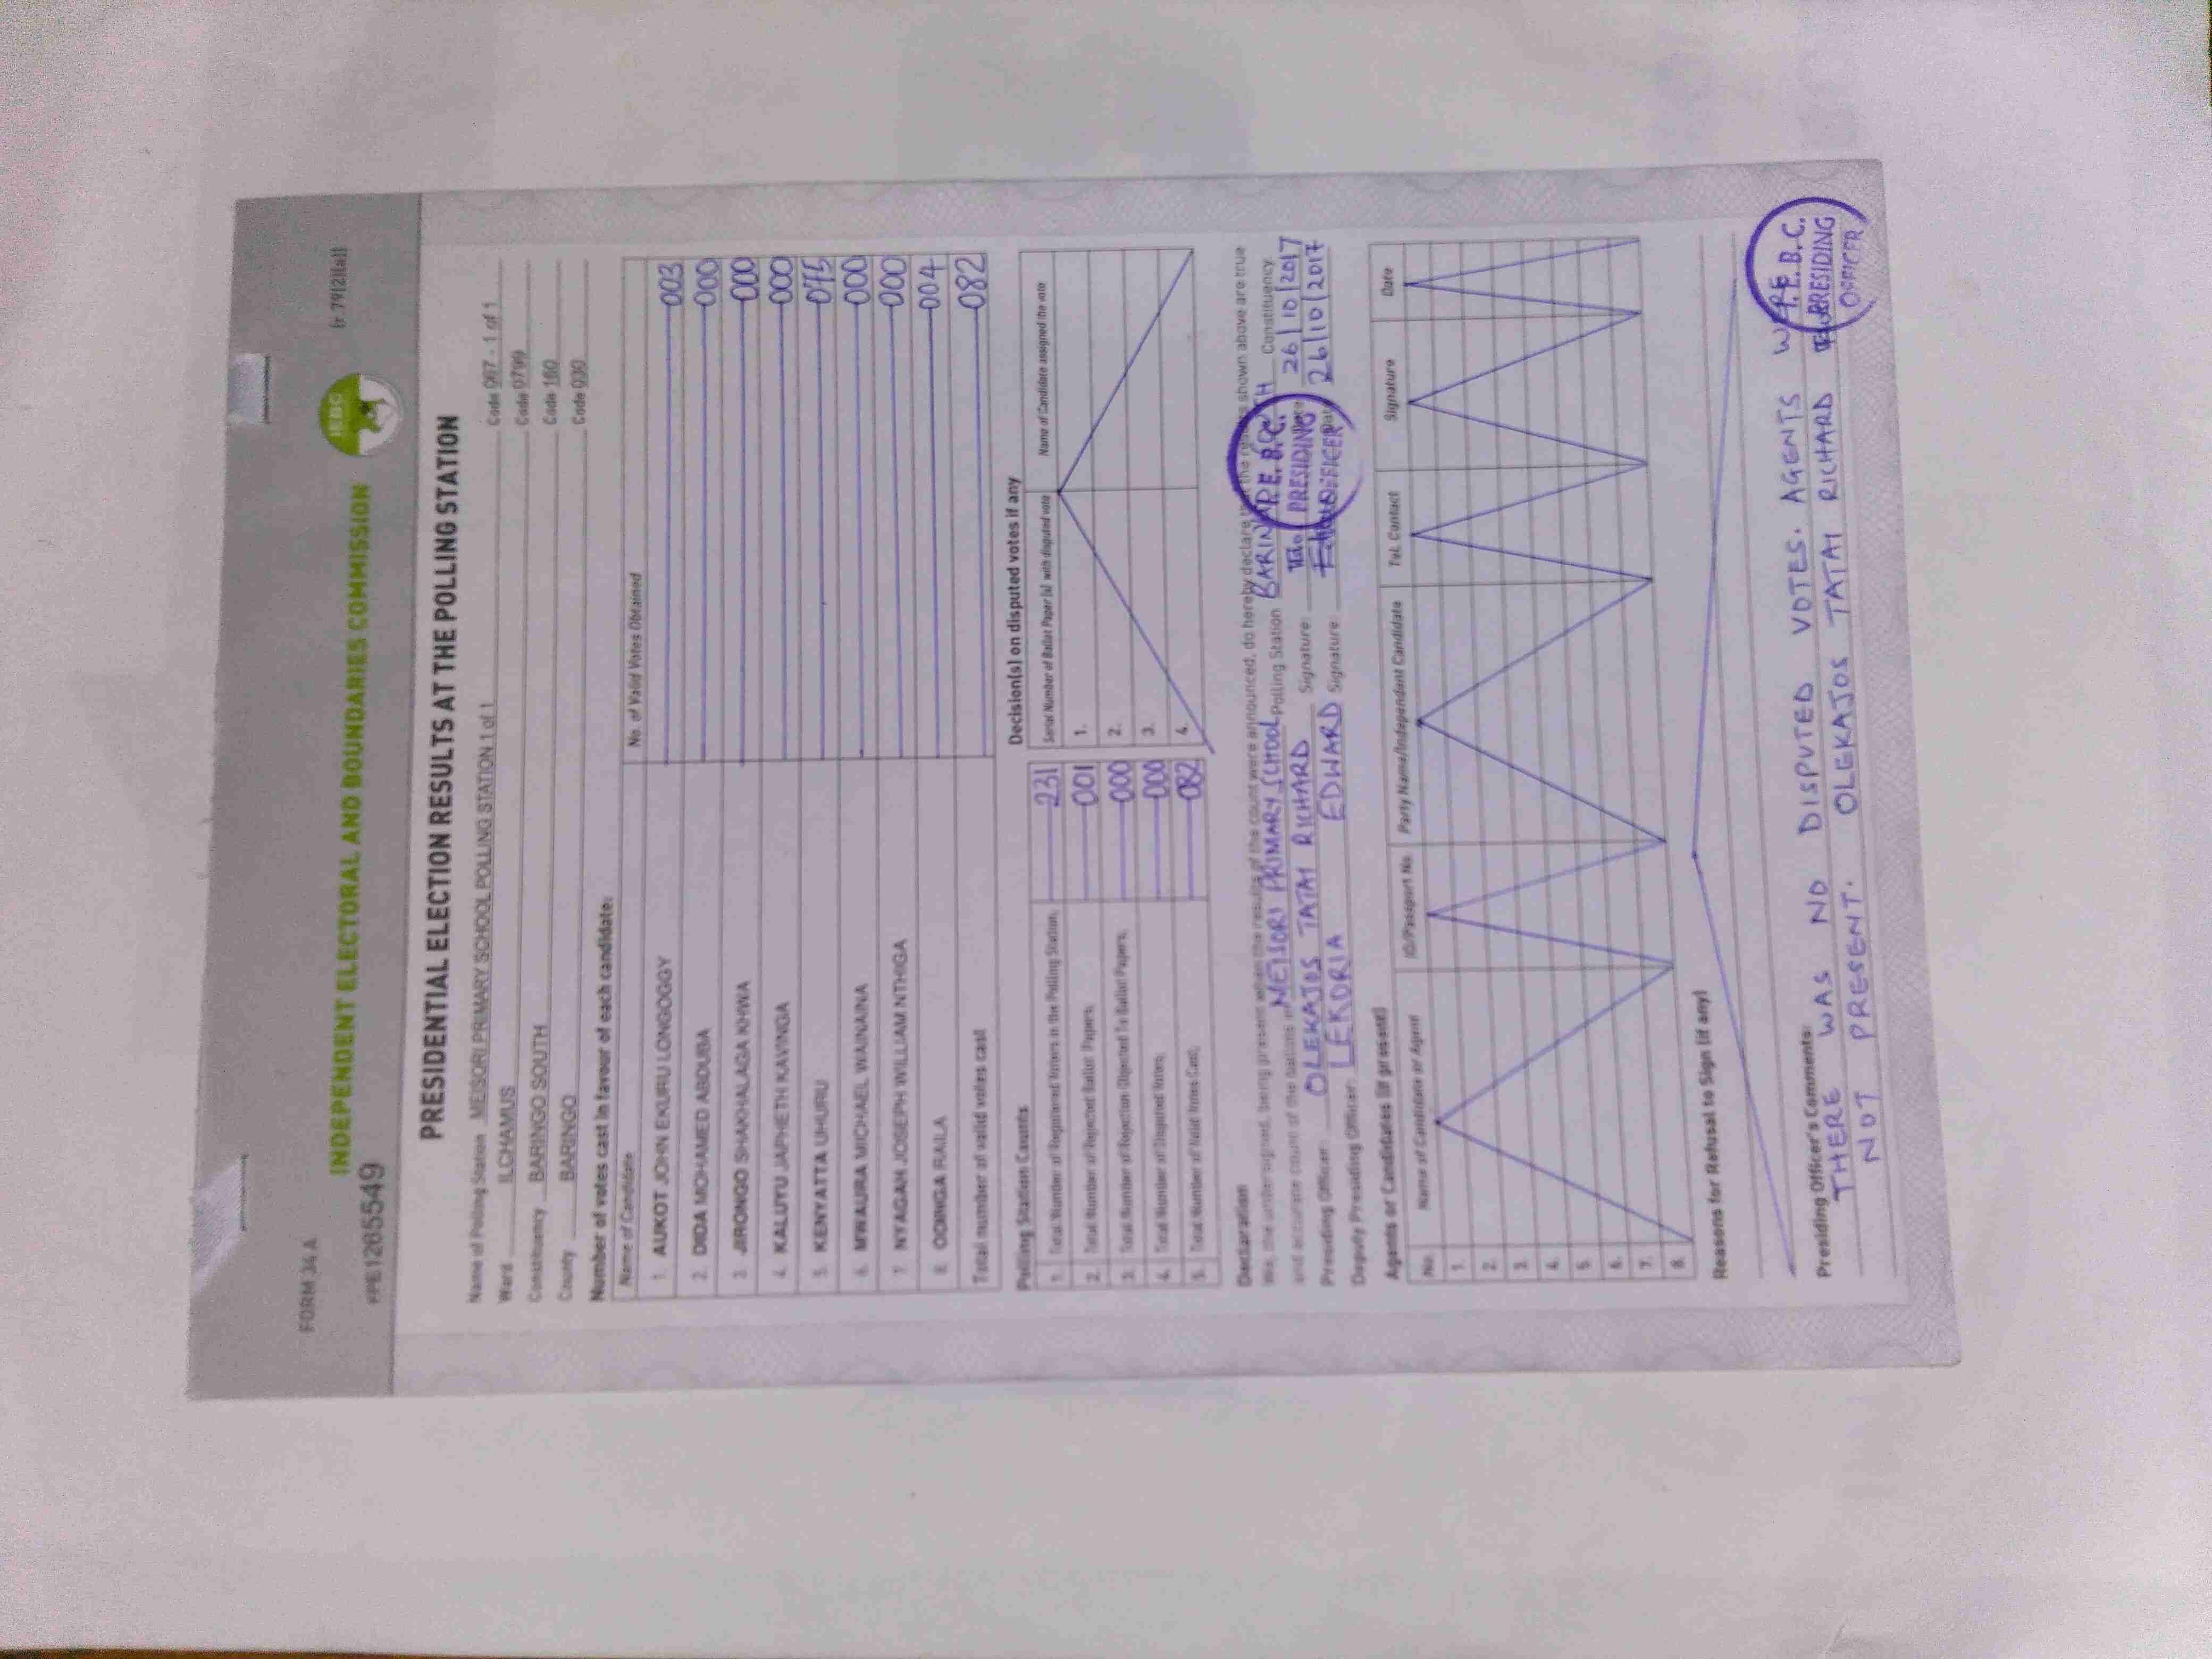 FORM 34 A
(r 79(2)(a))
PPE1265549
INDEPENDENT ELECTORAL AND BOUNDARIES COMMISSION
IEBC
PRESIDENTIAL ELECTION RESULTS AT THE POLLING STATION
Name of Polling Station MEISORI PRIMARY SCHOOL POLLING STATION 1 of 1 Code 087 - 1 of 1
Ward ILCHAMUS Code 0799
Constituency BARINGO SOUTH Code 160
County BARINGO Code 030
Number of votes cast in favour of each candidate:
Name of Candidate No. of Valid Votes Obtained
1. AUKOT JOHN EKURU LONGOGGY 003
2. DIDA MOHAMED ABDUBA 000
3. JIRONGO SHAKHALAGA KHWA 000
4. KALUYU JAPHETH KAVINGA 000
5. KENYATTA UHURU 075
6. MWAURA MICHAEL WAINAINA 000
7. NYAGAH JOSEPH WILLIAM NTHIGA 000
8. ODINGA RAILA 004
Total number of valid votes cast 082
Polling Station Counts
1. Total Number of Registered Voters in the Polling Station 231
2. Total Number of Rejected Ballot Papers 001
3. Total Number of Rejection Objected To Ballot Papers 000
4. Total Number of Disputed Votes 000
5. Total Number of Valid Votes Cast 082
Decision(s) on disputed votes if any
Serial Number of Ballot Paper (s) with disputed vote Name of Candidate assigned the vote
1.
2.
3.
4.
Declaration
We, the undersigned, being present when the results of the count were announced, do hereby declare that the results shown above are true
and accurate count of the ballots in MEISORI PRIMARY SCHOOL Polling Station Constituency
Presiding Officer: OLEKAJOS TATAI RICHARD Signature: Date 26/10/2017
Deputy Presiding Officer: LEKORIA EDWARD Signature: Date 26/10/2017
I.E.B.C.
PRESIDING
OFFICER
Agents or Candidates (if present)
No. Name of Candidate or Agent ID/Passport No. Party Name/Independent Candidate Tel. Contact Signature Date
1.
2.
3.
4.
5.
6.
7.
8.
Reasons for Refusal to Sign (if any)
Presiding Officer's Comments:
THERE WAS NO DISPUTED VOTES. AGENTS WERE
NOT PRESENT. OLEKAJOS TATAI RICHARD
I.E.B.C.
PRESIDING
OFFICER